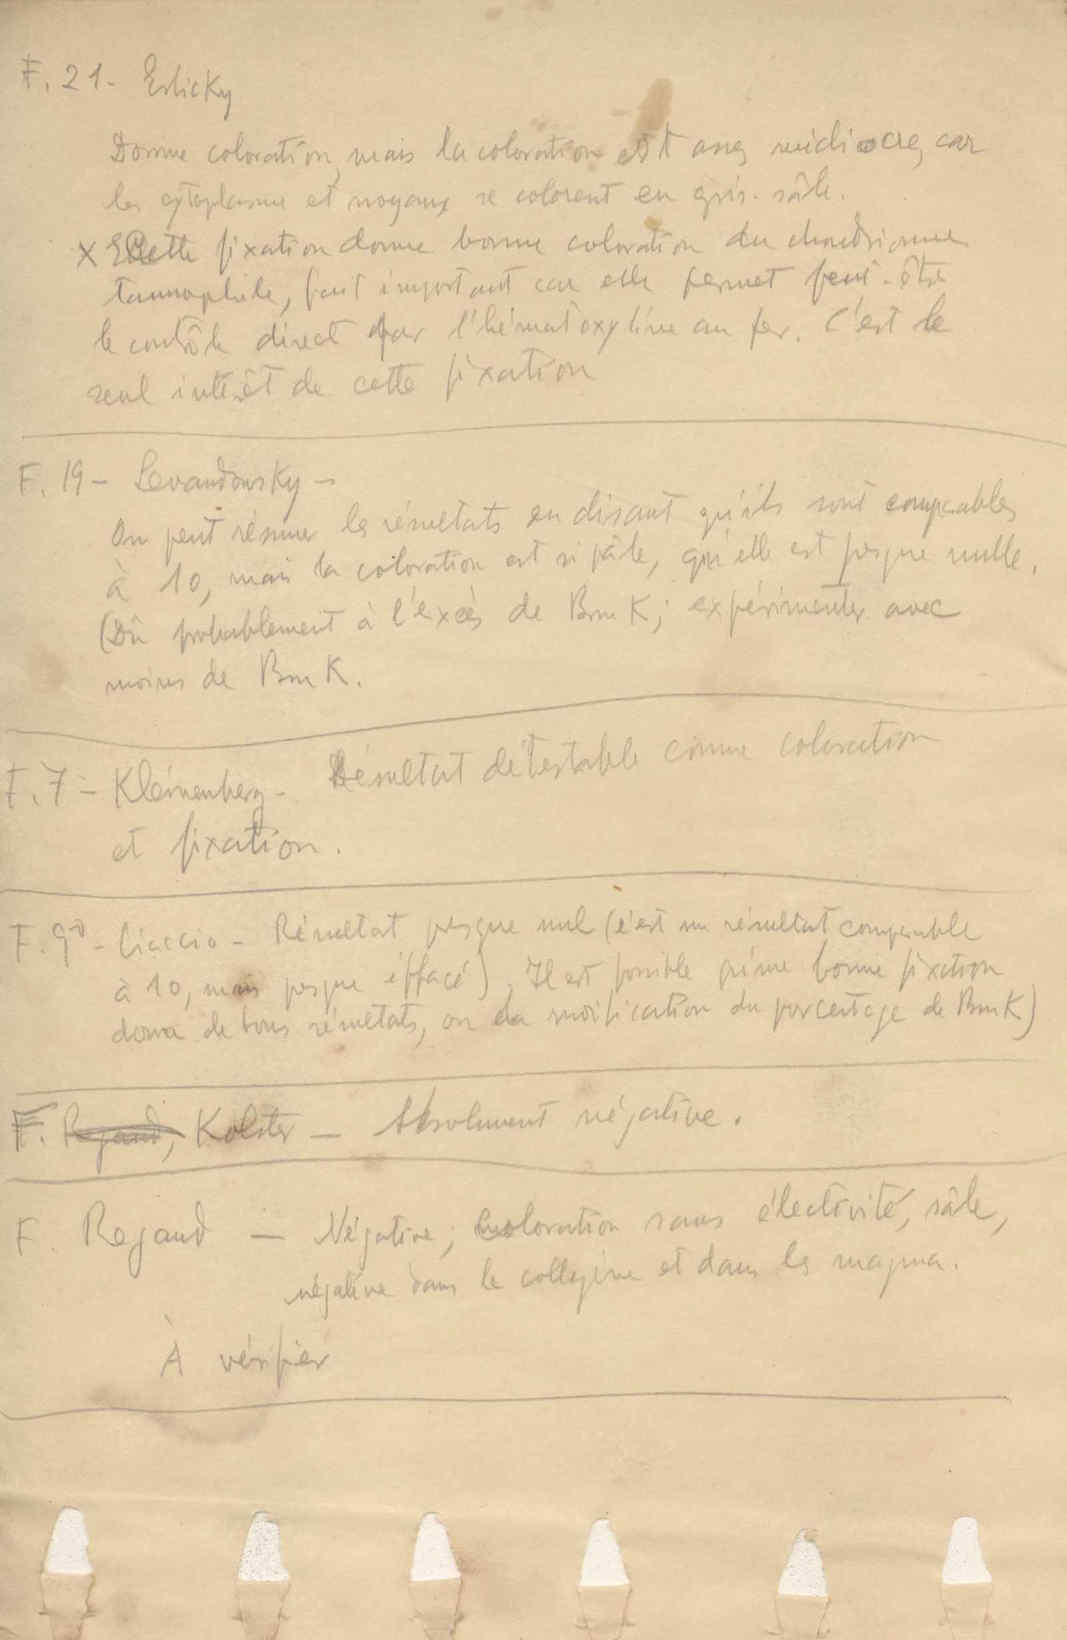 F. 21 - Erlicky
Donne coloration, mais la coloration est assez médiocre, car
les cytoplasme et noyaux se colorent en gris sâle.
X Cette fixation donne bonne coloration du chondriome
tannophile, fait important car elle permet peut-être
le contrôle direct par l'hématoxyline au fer. C'est le
seul intérêt de cette fixation
F. 19 - Levandowsky -
On peut résumer les résultats en disant qu'ils sont comparables
à 10, mais la coloration est si pâle, qu'elle est presque nulle.
(Dû probablement à l'excès de Brm K; expérimenter avec
moins de Brm K.
F. 7 - Kleinenberg - Résultat détestable comme coloration
et fixation.
F. 9 - Ciaccio - Résultat presque nul (c'est un résultat comparable
à 10, mais presque effacé). Il est possible qu'une bonne fixation
donne de bons résultats, ou la modification du porcentage de Brm K)
F. Regaud, Kolster - Absolument négative.
F. Regaud - Négative; coloration sans électivité, sâle,
négative dans le collagène et dans les
À vérifier